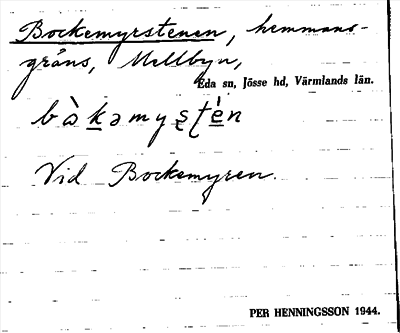 Bockemyrstenen, hemmans-
gräns, Mellbyn,
Eda sn, Jösse hd, Värmlands län.
bàkəmystén
Vid Bockemyren.
PER HENNINGSSON 1944.